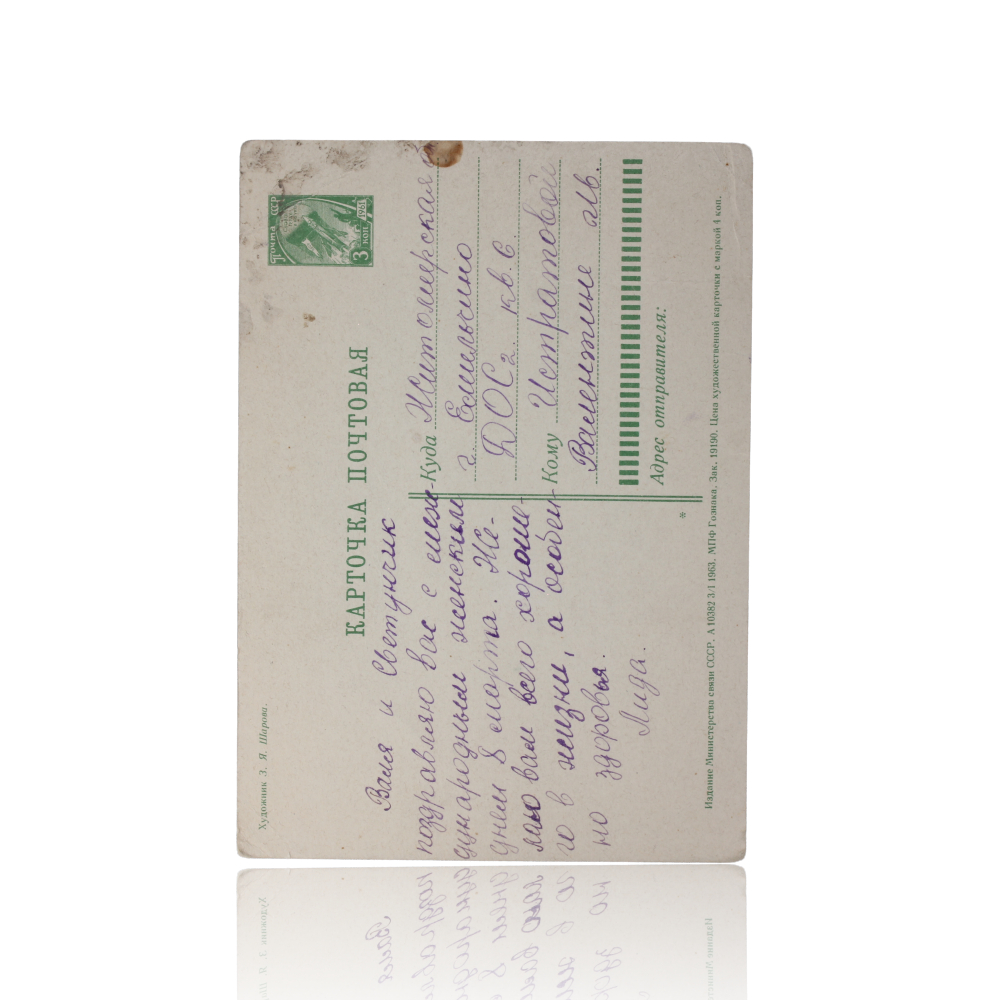 Художник З. Я. Шарова.
Почта СССР
1961
3 коп.
КАРТОЧКА ПОЧТОВАЯ
Валя и Светунчик
поздравляю вас с меж-
дународным женским
днем 8 марта. Же-
лаю вам всего хороше-
го в жизни, а особен-
но здоровья.
Лида.
Куда Житомирская
г. Емильчино
ДОС2. кв. 6.
Кому Истратовой
Валентине
Адрес отправителя:
*
Издание Министерства связи СССР. А 10382 3/I 1963. МПФ Гознака. Зак. 19190. Цена художественной карточки с маркой 4 коп.